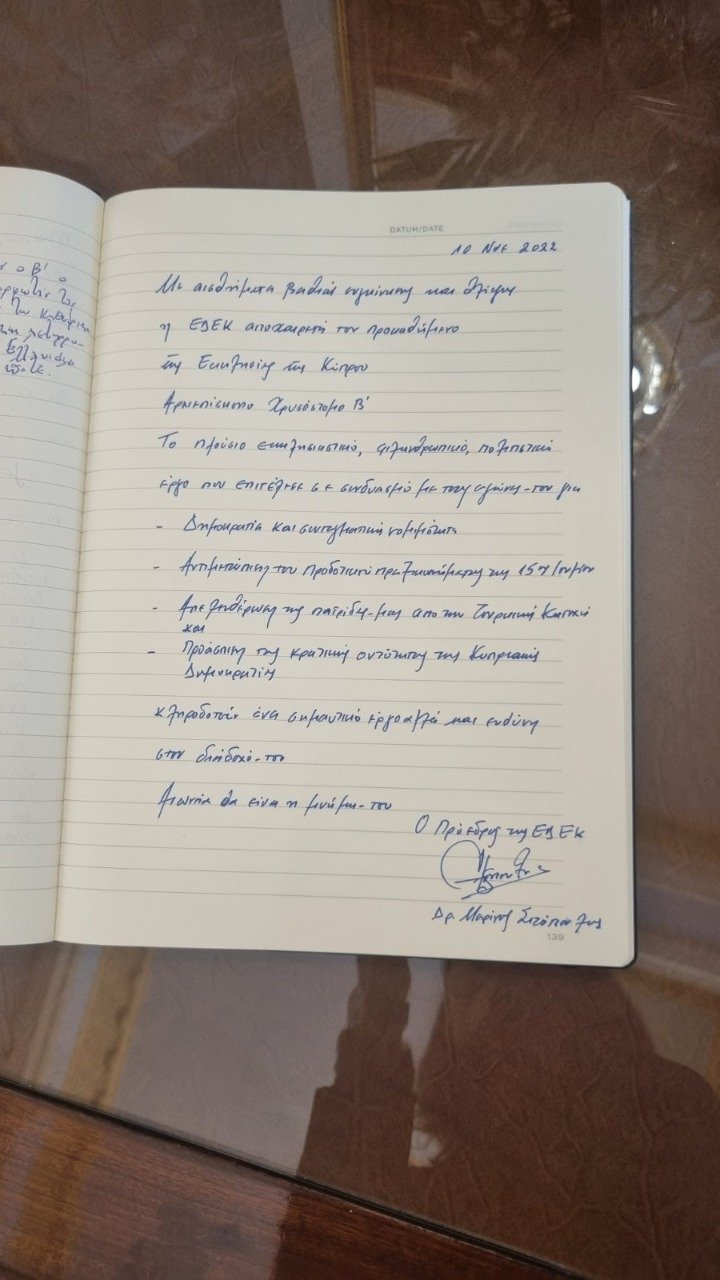 ο Β' ο
DATUM/DATE
10 Νοε 2022
Με αισθήματα βαθειάς συγκίνησης και θλίψης
η ΕΔΕΚ αποχαιρετά τον Προκαθήμενο
της Εκκλησίας της Κύπρου
Αρχιεπίσκοπο Χρυσόστομο Β'
Το πλούσιο εκκλησιαστικό, φιλανθρωπικό, πολιτιστικό
έργο που επιτέλεσε σε συνδυασμό με τους αγώνες-του για
- Δημοκρατία και συνταγματική νομιμότητα
- Αντιμετώπιση του Προδοτικού πραξικοπήματος της 15ης Ιουλίου
- Απελευθέρωση της πατρίδας-μας από την Τουρκική Κατοχή
και
- Προάσπιση της κρατικής οντότητας της Κυπριακής
Δημοκρατίας
κληροδοτούν ένα σημαντικό έργο αλλά και ευθύνη
στον διάδοχό-του
Αιωνία θα είναι η μνήμη-του
Ο Πρόεδρος της ΕΔΕΚ
Δρ. Μαρίνος Σιζόπουλος
139